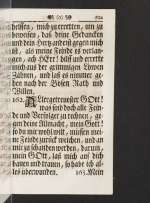 helffen, mich zu erretten, um zu
beweisen, daß deine Gedancken
und dein Hertz anders gegen mich
ist, als meine Feinde es verlangen,
ach HErr! hilff und errette
mich aus der grimmigen Löwen
Zähnen, und laß es nimmer gehen
nach der Bösen Rath und
Willen.
162. Allergetreuester GOtt!
was sind doch alle Feinde
und Verfolger zu rechnen, gegen
deine Allmacht, mein Gott!
so du mir wohl wilt, müssen meine
Feinde zurück weichen, und an
mir zu schanden werden, darum,
mein GOtt, laß mich auf dich
bauen und trauen, so habe ich alles
überwunden.
163. Mein